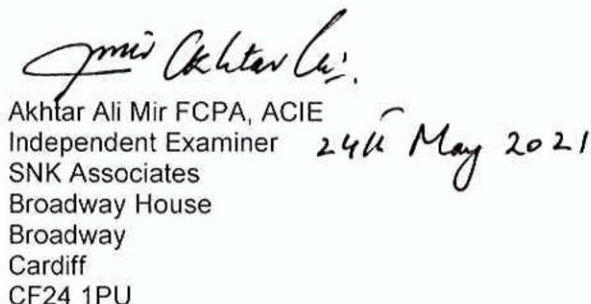 Mir Akhtar Ali
Akhtar Ali Mir FCPA, ACIE
Independent Examiner 24th May 2021
SNK Associates
Broadway House
Broadway
Cardiff
CF24 1PU